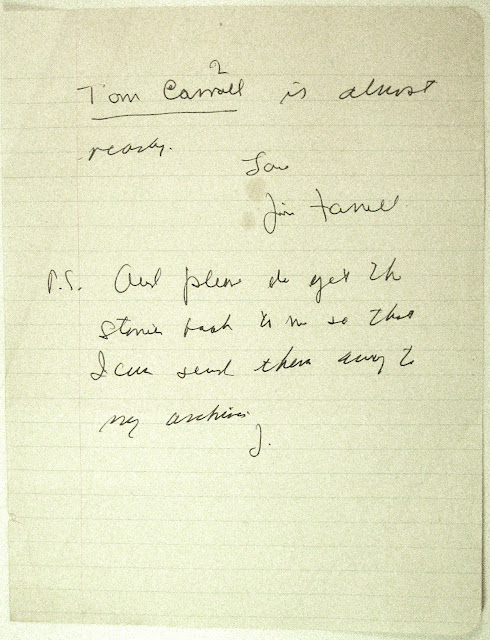 2
Tom Carroll is almost
ready.
Love
Jim Farrell
P.S. And please do get the
stories back to me so that
I can send them away to
my archives
J.